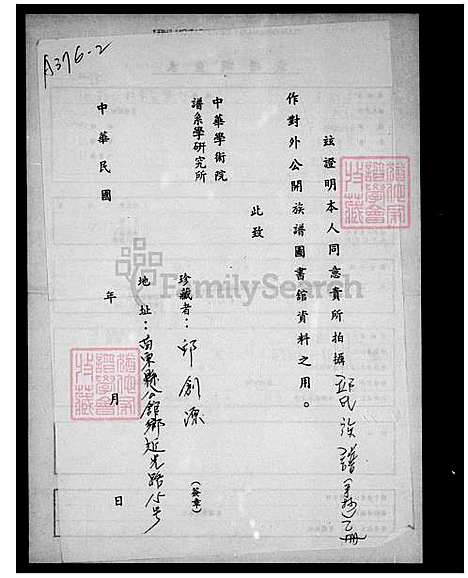 A376-2
茲證明本人同意貴所拍攝邱氏族譜(手抄)乙冊
作對外公開族譜圖書館資料之用。
此致
中華學術院
譜系學研究所
珍藏者：邱創源(簽章)
地址：苗栗縣公館鄉近光路15号
中華民國 年 月 日
FamilySearch